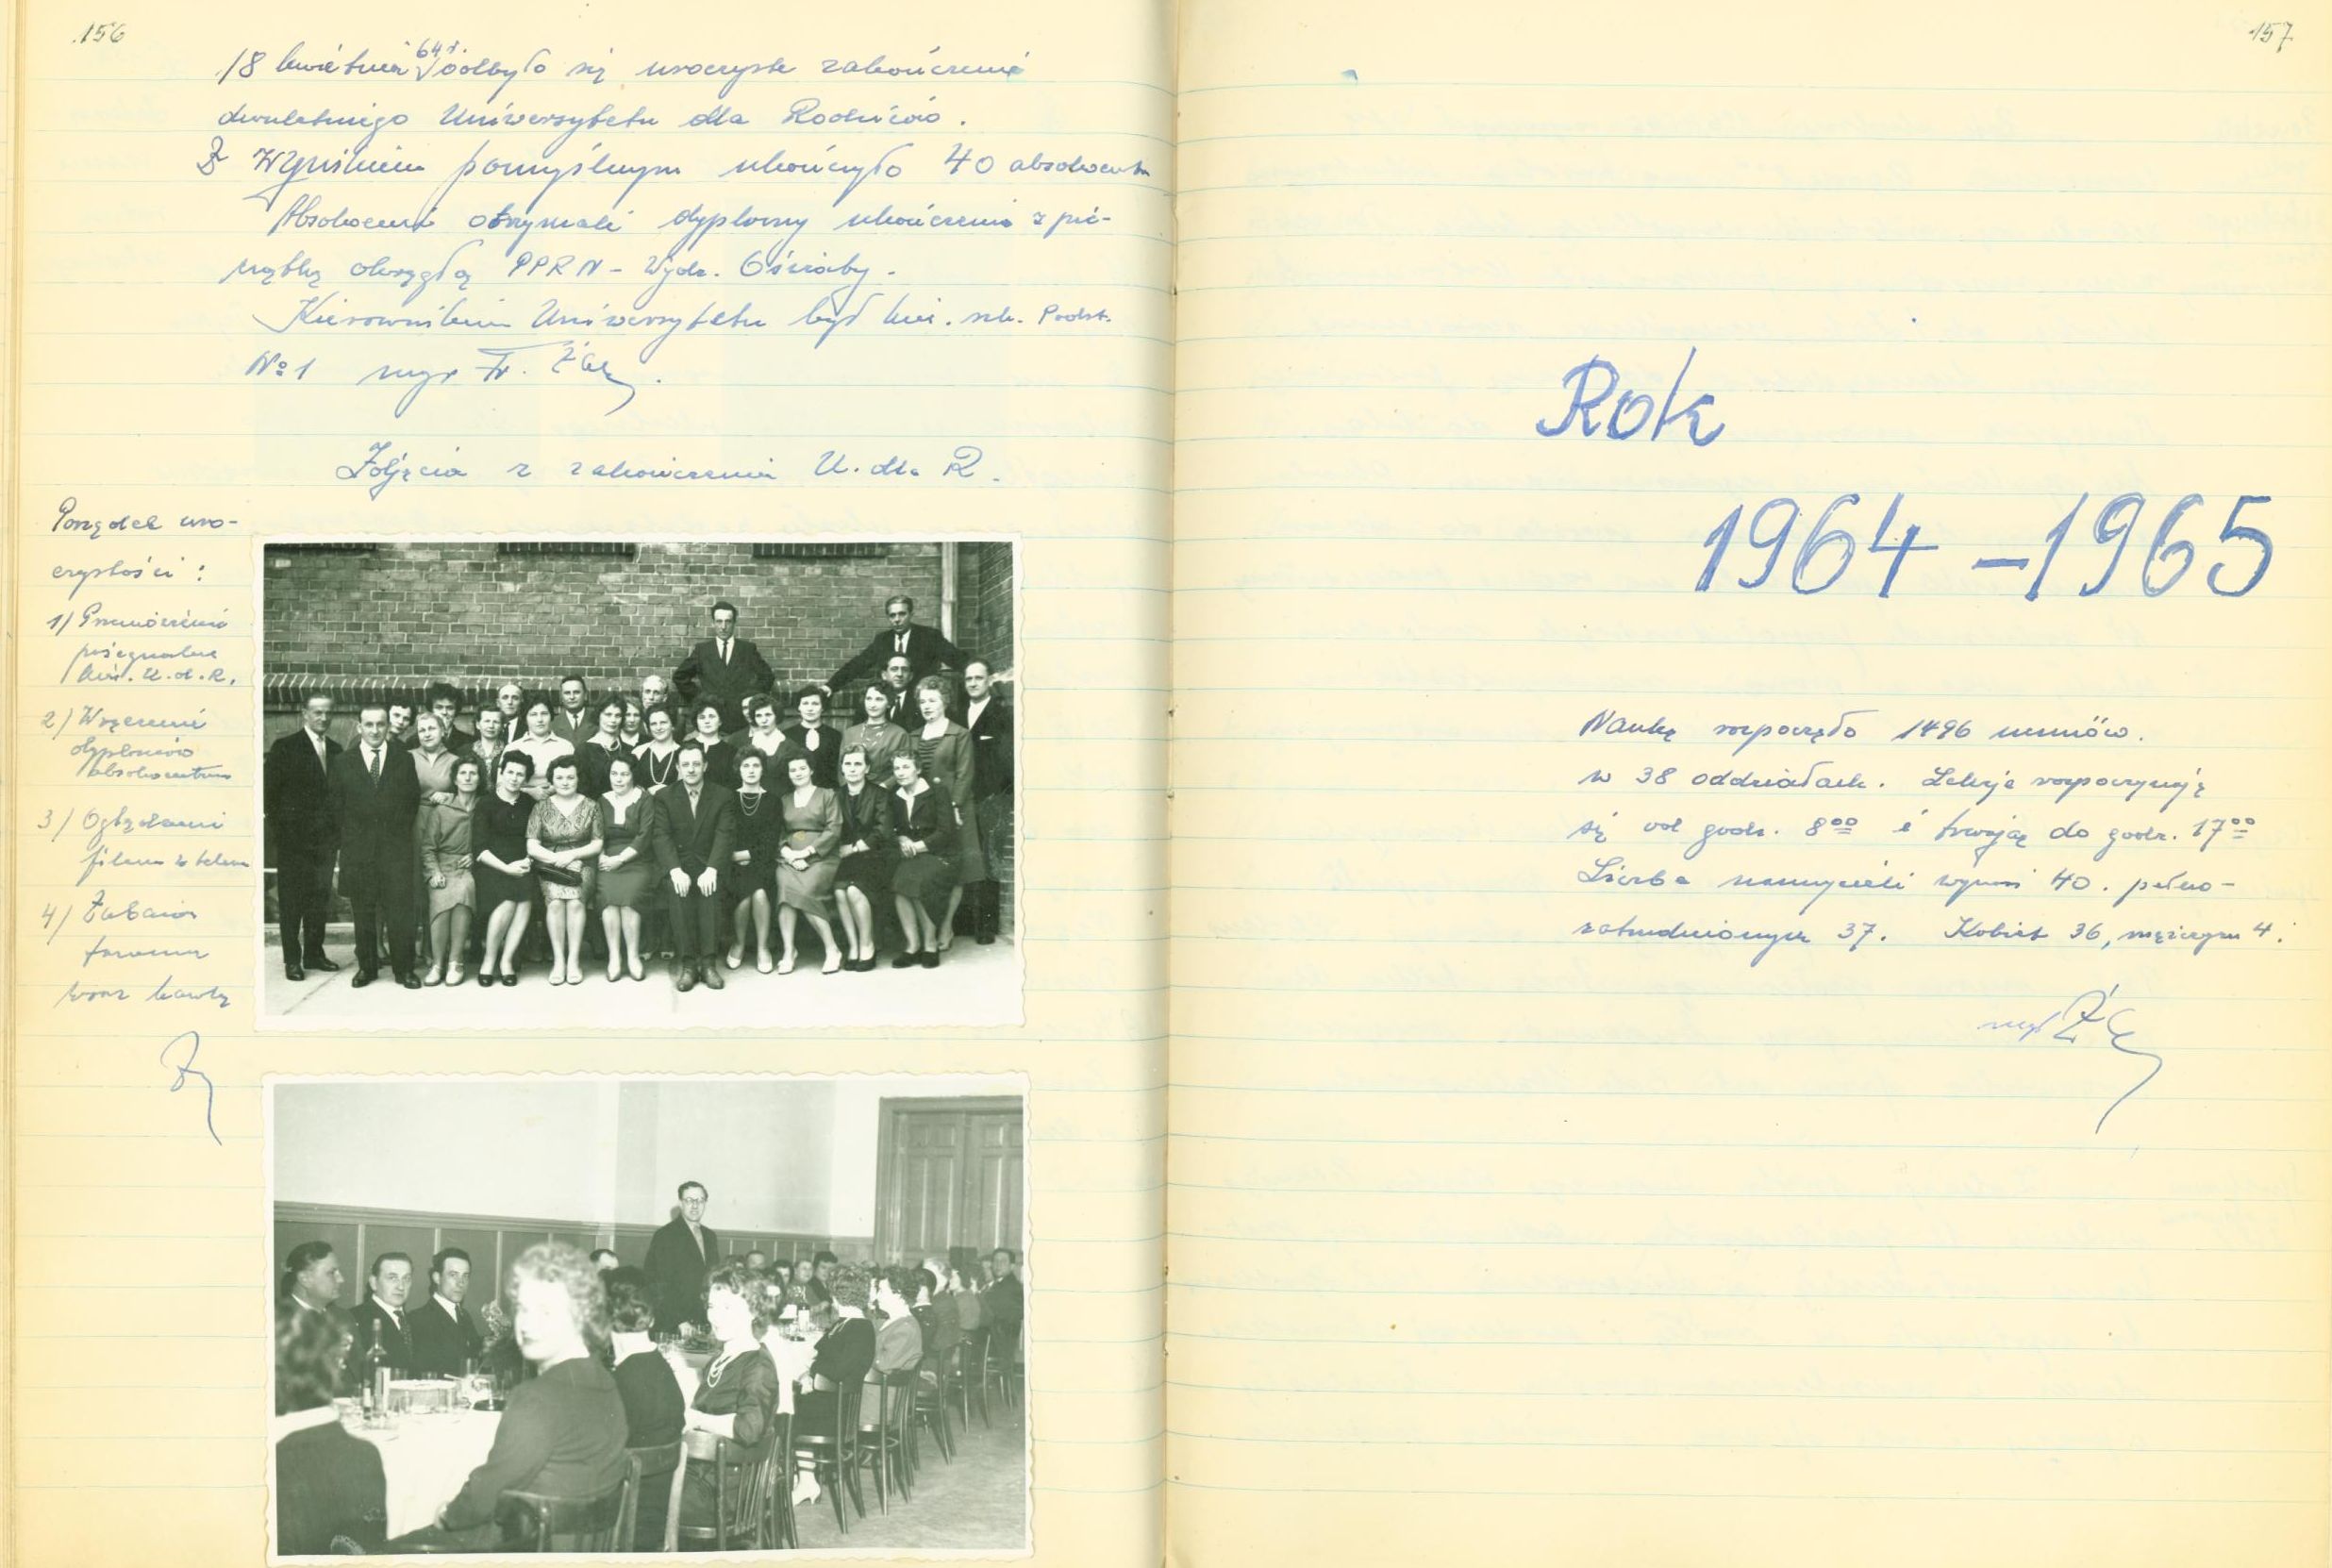 156
18 kwietnia 64 r. odbyło się uroczyste zakończenie
dwuletniego Uniwersytetu dla Rodziców.
Z wynikiem pomyślnym ukończyło 40 absolwentów
Absolwenci otrzymali dyplomy ukończenia z pie-
czątką okrągłą PPRN - Wydz. Oświaty.
Kierownikiem Uniwersytetu był kier. szk. Podst.
No 1 mgr Fr.
Zdjęcia z zakończenia U. dla R.
Porządek uro-
czystości:
1) Przemówienie
pożegnalne
kier. U. d. R.
2) Wręczenie
dyplomów
absolwentom
3) Oglądanie
filmu w telew
4) Zabawa
taneczna
157
Rok
1964-1965
Naukę rozpoczęło 1496 uczniów.
w 38 oddziałach. Lekcje rozpoczynają
się od godz. 8⁰⁰ i trwają do godz. 17⁰⁰
Liczba nauczycieli wynosi 40. pełno-
zatrudnionych 37. Kobiet 36, mężczyzn 4.
mgr